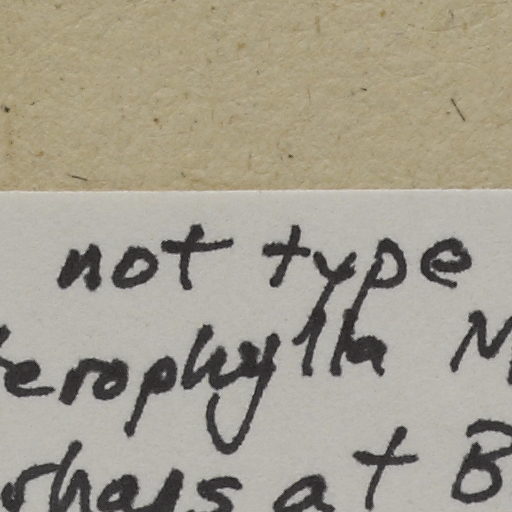 not type
terophylla M
rhaps at B